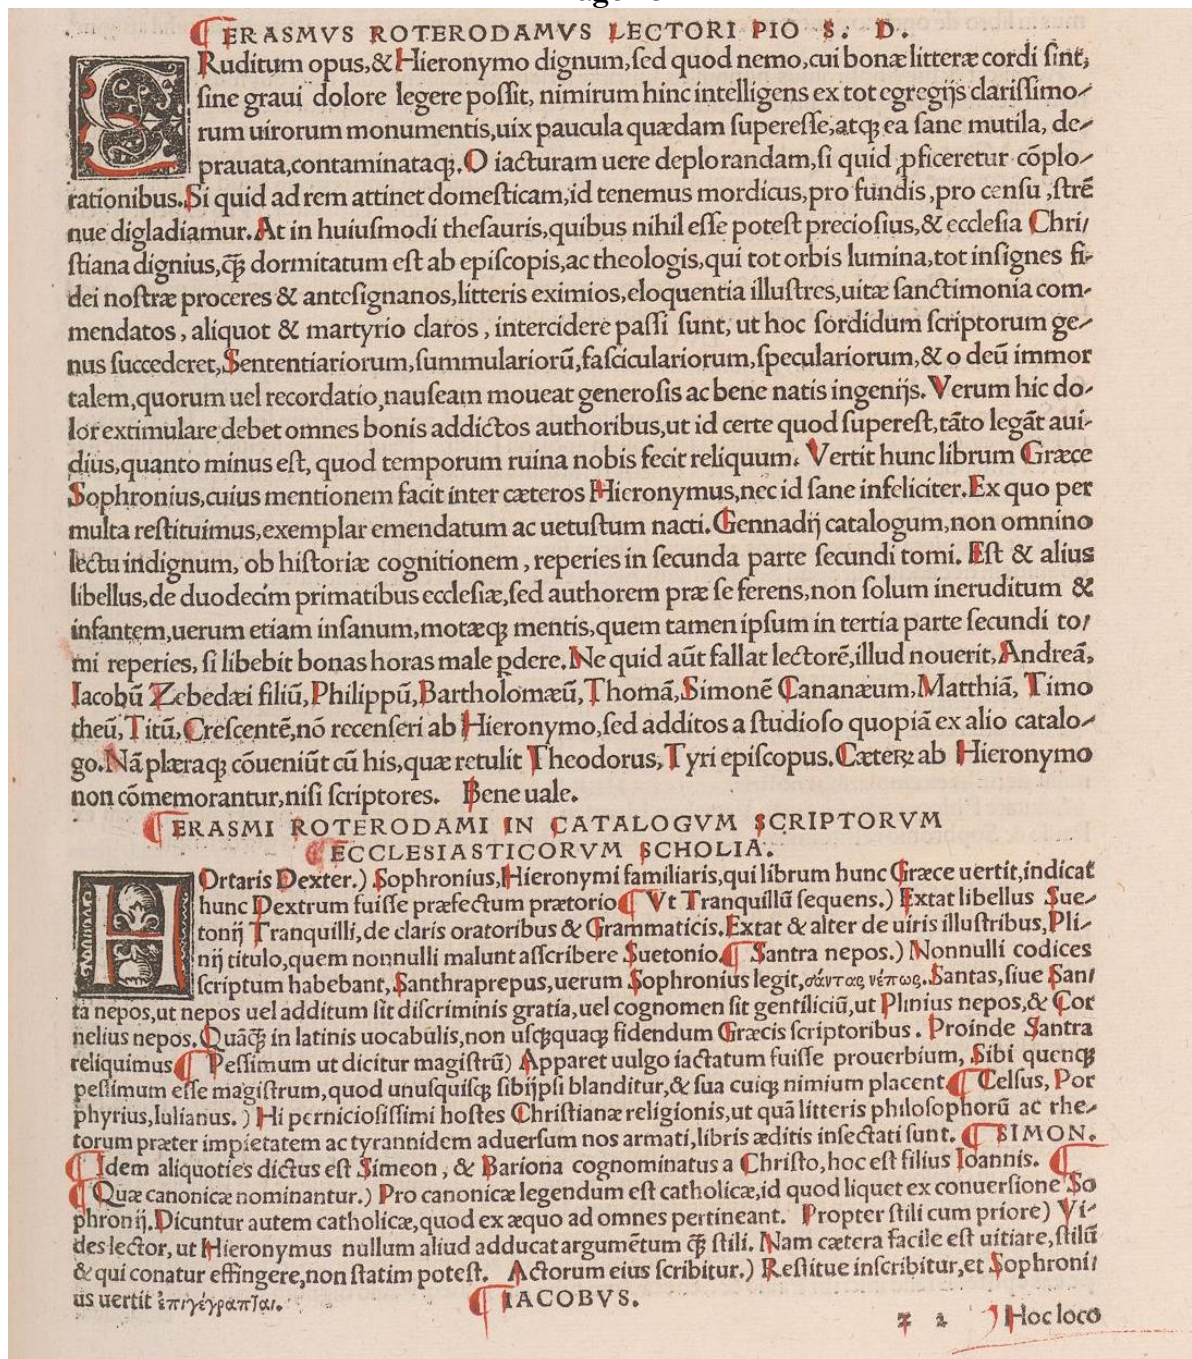 ERASMVS ROTERODAMVS LECTORI PIO S. D.
ERuditum opus,& Hieronymo dignum,sed quod nemo,cui bonæ litteræ cordi sint,
sine graui dolore legere possit, nimirum hinc intelligens ex tot egregijs clarissimo-
rum uirorum monumentis,uix paucula quædam superesse,atqꝫ ea sane mutila, de-
prauata,contaminataqꝫ.O iacturam uere deplorandam,si quid ꝓficeretur cōplo-
rationibus.Si quid ad rem attinet domesticam,id tenemus mordicus,pro fundis,pro censu,strē
nue digladiamur.At in huiusmodi thesauris,quibus nihil esse potest preciosius,& ecclesia Chri/
stiana dignius,q̄ꝫ dormitatum est ab episcopis,ac theologis,qui tot orbis lumina,tot insignes fi-
dei nostræ proceres & antesignanos,litteris eximios,eloquentia illustres,uitæ sanctimonia com-
mendatos, aliquot & martyrio claros, intercidere passi sunt, ut hoc sordidum scriptorum ge-
nus succederet,Sententiariorum,summulariorū,fasciculariorum,speculariorum,& o deū immor
talem,quorum uel recordatio,nauseam moueat generosis ac bene natis ingenijs.Verum hic do-
lor extimulare debet omnes bonis addictos authoribus,ut id certe quod superest,tāto legāt aui-
dius,quanto minus est, quod temporum ruina nobis fecit reliquum. Vertit hunc librum Græce
Sophronius,cuius mentionem facit inter cæteros Hieronymus,nec id sane infeliciter.Ex quo per
multa restituimus,exemplar emendatum ac uetustum nacti.Gennadij catalogum,non omnino
lectu indignum, ob historiæ cognitionem, reperies in secunda parte secundi tomi. Est & alius
libellus,de duodecim primatibus ecclesiæ,sed authorem præ se ferens,non solum ineruditum &
infantem,uerum etiam insanum,motæqꝫ mentis,quem tamen ipsum in tertia parte secundi to/
mi reperies, si libebit bonas horas male ꝑdere.Ne quid aūt fallat lectorē,illud nouerit,Andreā,
Iacobū Zebedæi filiū,Philippū,Bartholomæū,Thomā,Simonē Cananæum,Matthiā, Timo
theū,Titū,Crescentē,nō recenseri ab Hieronymo,sed additos a studioso quopiā ex alio catalo-
go.Nā plæraqꝫ cōueniūt cū his,quæ retulit Theodorus,Tyri episcopus.Cæteꝝ ab Hieronymo
non cōmemorantur,nisi scriptores. Bene uale.
ERASMI ROTERODAMI IN CATALOGVM SCRIPTORVM
ECCLESIASTICORVM SCHOLIA.
HOrtaris Dexter.) Sophronius,Hieronymi familiaris,qui librum hunc Græce uertit,indicat
hunc Dextrum fuisse præfectum prætorio ¶ Vt Tranquillū sequens.) Extat libellus Sue-
tonij Tranquilli,de claris oratoribus & Grammaticis.Extat & alter de uiris illustribus,Pli-
nij titulo,quem nonnulli malunt asscribere Suetonio.¶ Santra nepos.) Nonnulli codices
scriptum habebant,Santhraprepus,uerum Sophronius legit,σάντας νέπως.Santas,siue San/
ta nepos,ut nepos uel additum sit discriminis gratia,uel cognomen sit gentiliciū,ut Plinius nepos,& Cor
nelius nepos.Quāq̄ꝫ in latinis uocabulis,non usqꝫquaqꝫ fidendum Græcis scriptoribus. Proinde Santra
reliquimus ¶ Pessimum ut dicitur magistrū) Apparet uulgo iactatum fuisse prouerbium, Sibi quenqꝫ
pessimum esse magistrum,quod unusquisqꝫ sibijpsi blanditur,& sua cuiqꝫ nimium placent ¶ Celsus, Por
phyrius,Iulianus.) Hi perniciosissimi hostes Christianæ religionis,ut quā litteris philosophorū ac rhe-
torum præter impietatem ac tyrannidem aduersum nos armati,libris æditis insectati sunt. ¶ SIMON.
¶ Idem aliquoties dictus est Simeon, & Bariona cognominatus a Christo,hoc est filius Ioannis. ¶
¶ Quæ canonicæ nominantur.) Pro canonicæ legendum est catholicæ,id quod liquet ex conuersione So
phronij.Dicuntur autem catholicæ,quod ex æquo ad omnes pertineant. Propter stili cum priore) Vi-
des lector, ut Hieronymus nullum aliud adducat argumētum q̄ꝫ stili. Nam cætera facile est uitiare,stilū
& qui conatur effingere,non statim potest. Actorum eius scribitur.) Restitue inscribitur,et Sophroni/
us uertit ἐπιγέγραπται. ¶ IACOBVS.
z 2 Hoc loco